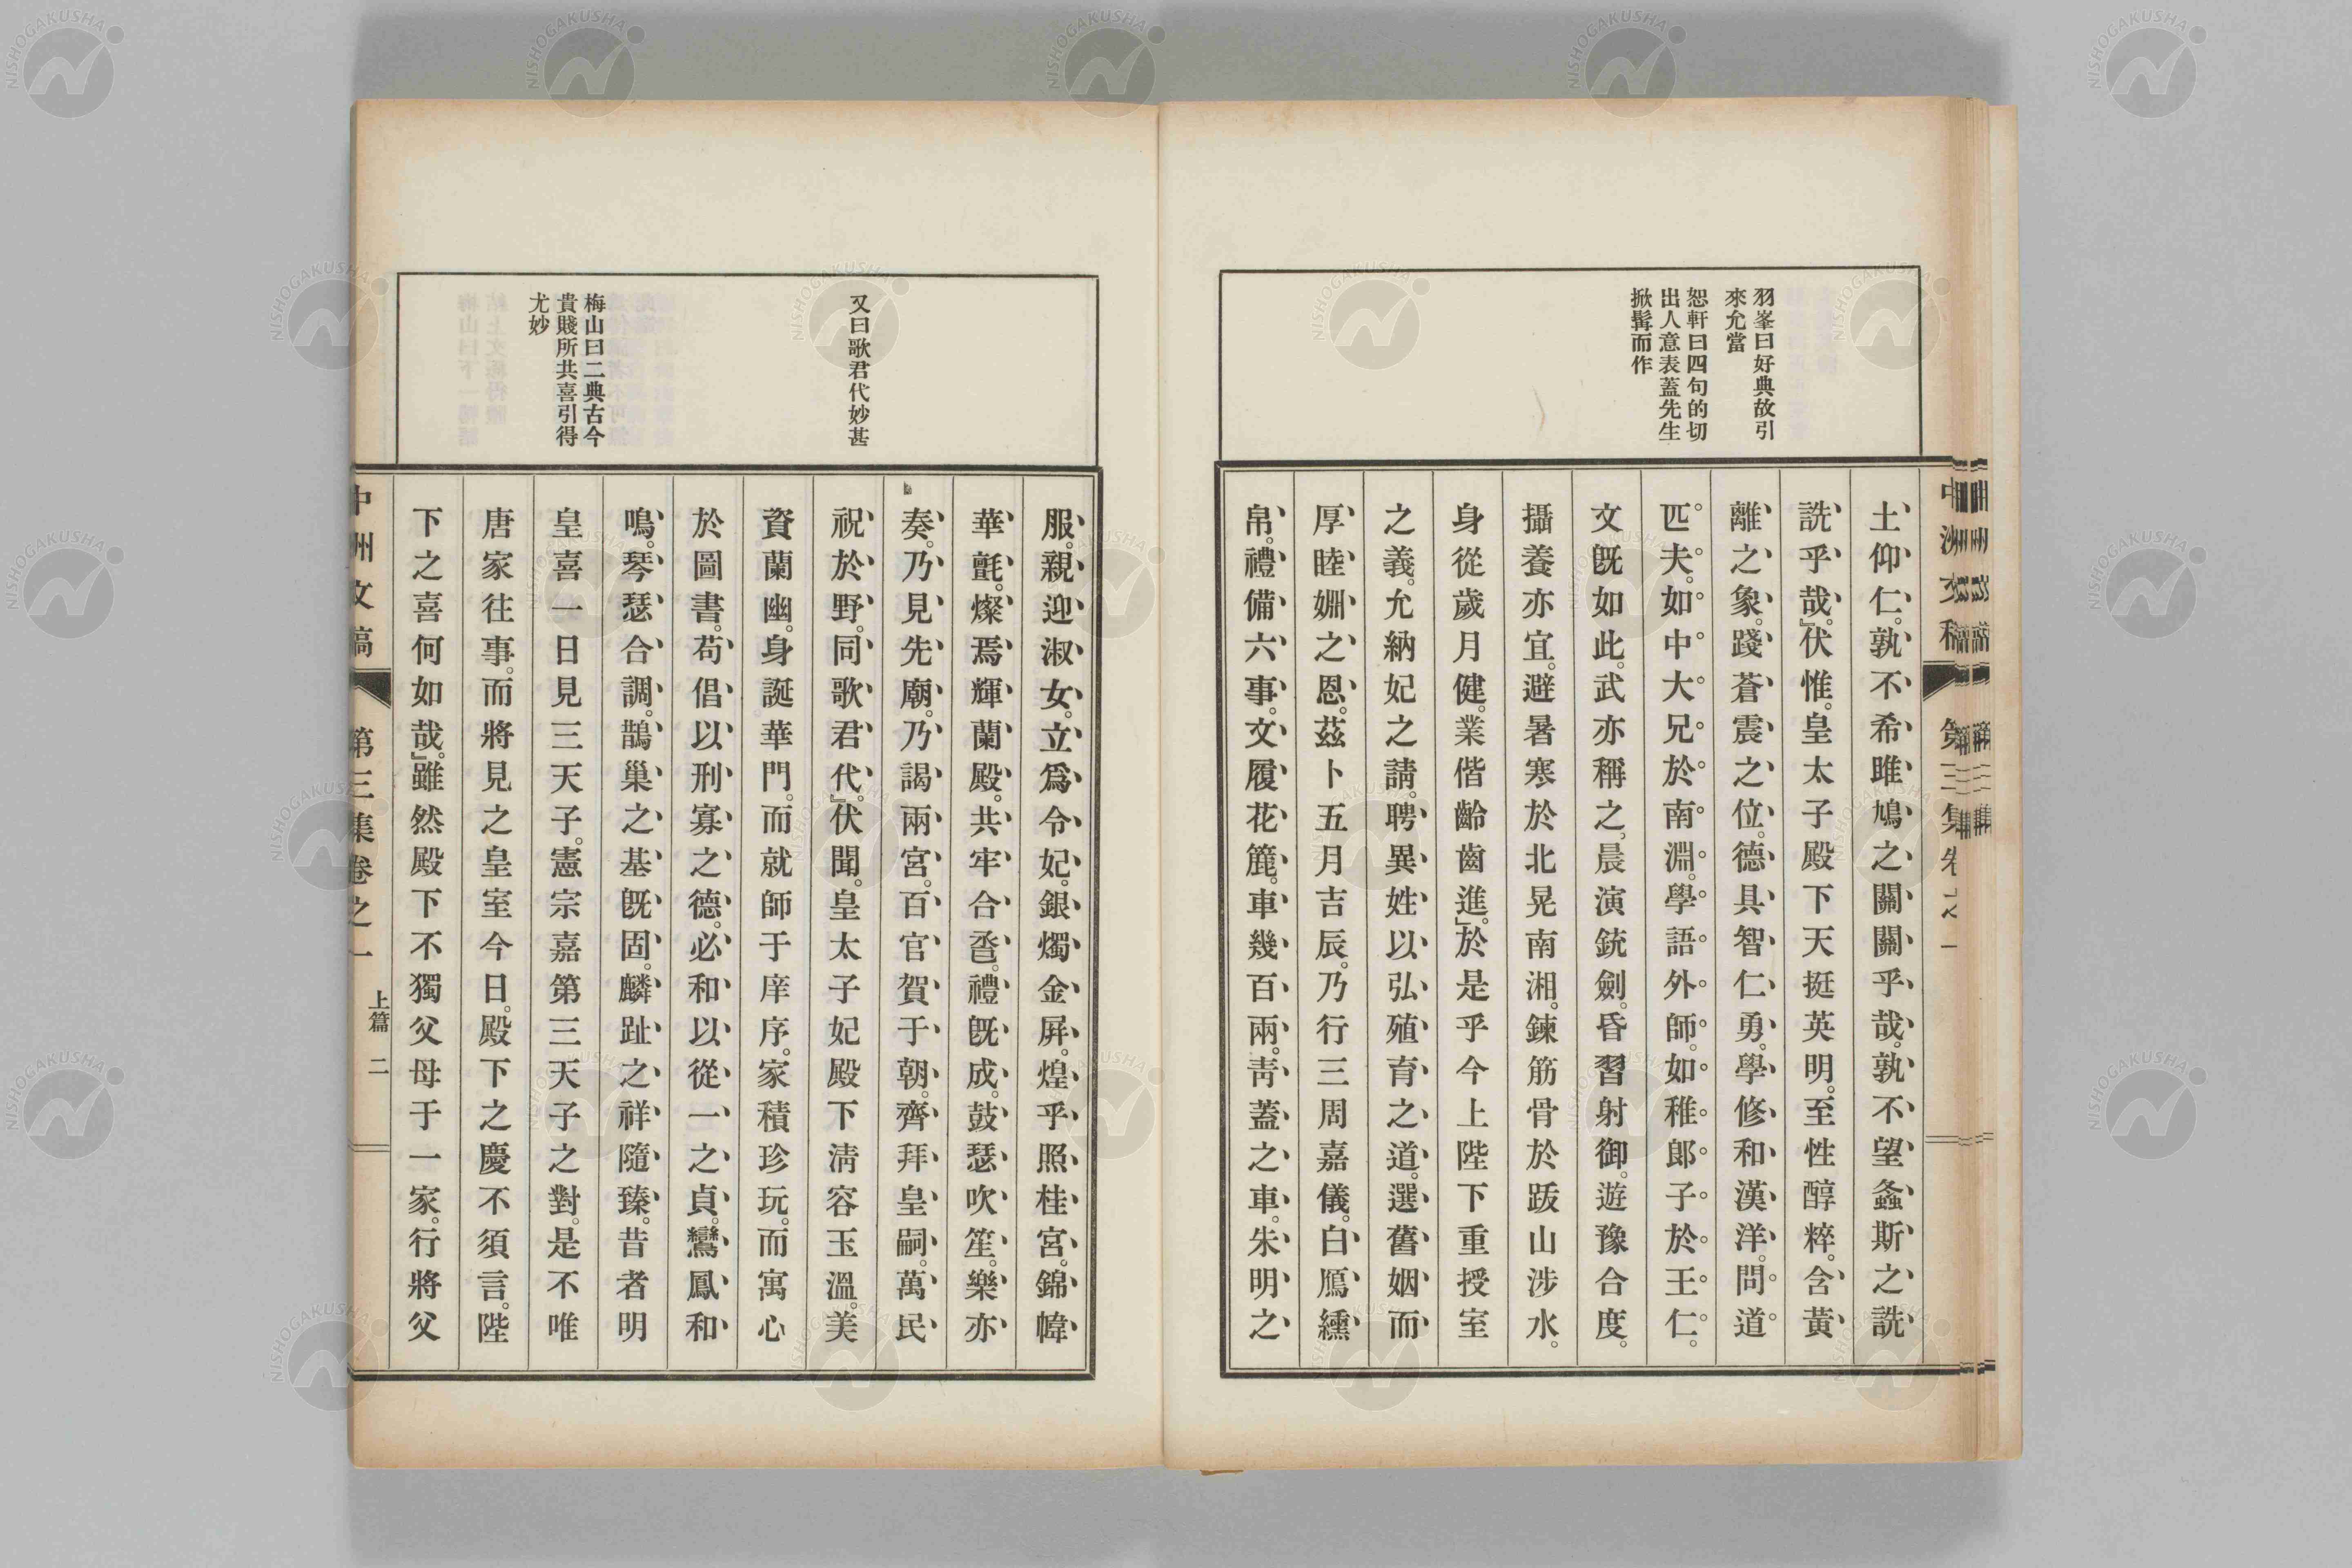 羽峯曰好典故引
來允當
恕軒曰四句的切
出人意表蓋先生
掀髯而作
土仰仁。孰不希雎鳩之關關乎哉。孰不望螽斯之詵
詵乎哉。』伏惟。皇太子殿下天挺英明。至性醇粹。含黃
離之象。踐蒼震之位。德具智仁勇。學修和漢洋。問道
匹夫。如中大兄於南淵。學語外師。如稚郎子於王仁。
文既如此。武亦稱之。晨演銃劍。昏習射御。遊豫合度。
攝養亦宜。避暑寒於北晃南湘。鍊筋骨於跋山涉水。
身從歲月健。業偕齡齒進。』於是乎今上陛下重授室
之義。允納妃之請。聘異姓以弘殖育之道。選舊姻而
厚睦婣之恩。茲卜五月吉辰。乃行三周嘉儀。白鴈纁
帛。禮備六事。文履花簏。車幾百兩。靑蓋之車。朱明之
又曰歌君代妙甚
梅山曰二典古今
貴賤所共喜引得
尤妙
服。親迎淑女。立爲令妃。銀燭金屛。煌乎照桂宮。錦幃
華氈。燦焉輝蘭殿。共牢合巹。禮既成。鼓瑟吹笙。樂亦
奏。乃見先廟。乃謁兩宮。百官賀于朝。齊拜皇嗣。萬民
祝於野。同歌君代。』伏聞。皇太子妃殿下淸容玉溫。美
資蘭幽。身誕華門。而就師于庠序。家積珍玩。而寓心
於圖書。苟倡以刑寡之德。必和以從一之貞。鸞鳳和
鳴。琴瑟合調。鵲巢之基既固。麟趾之祥隨臻。昔者明
皇喜一日見三天子。憲宗嘉第三天子之對。是不唯
唐家往事。而將見之皇室今日。殿下之慶不須言。陛
下之喜何如哉。』雖然殿下不獨父母于一家。行將父
中洲文稿
第三集卷之一
上篇
二